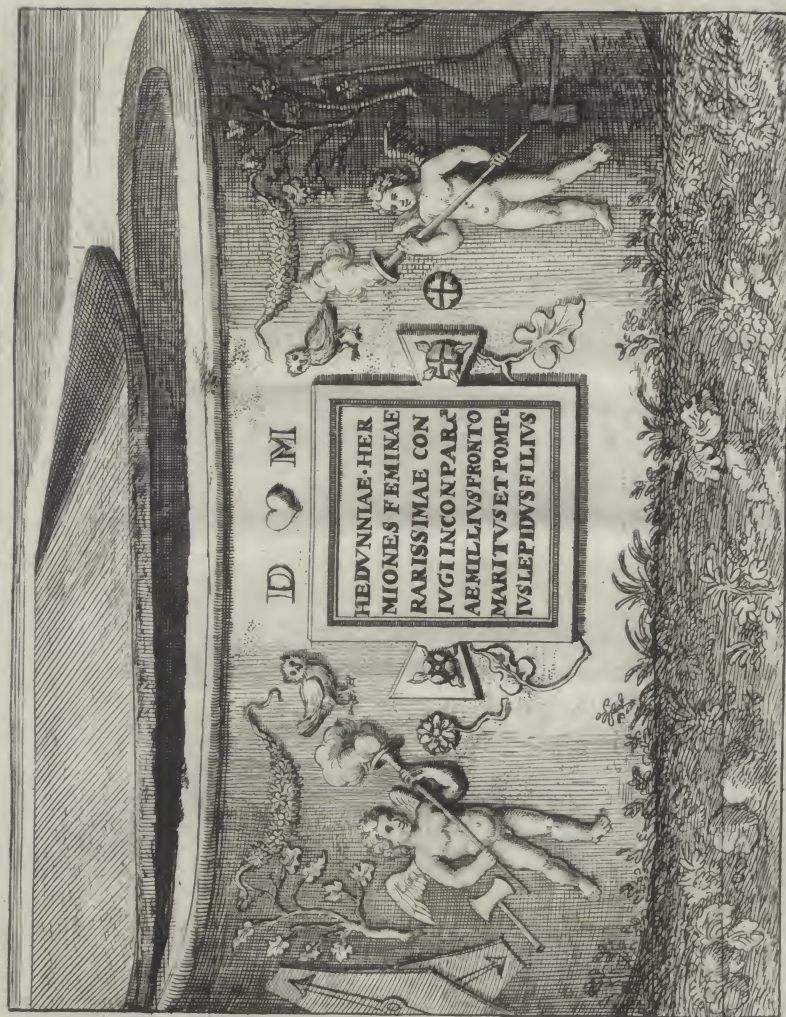 D M
HEDVNNIAE·HER
MIONES FEMINAE
RARISSIMAE CON
IVGI INCONPARA
AEMILLIVS FRONTO
MARITVS ET POMPE
IVS LEPIDVS FILIVS